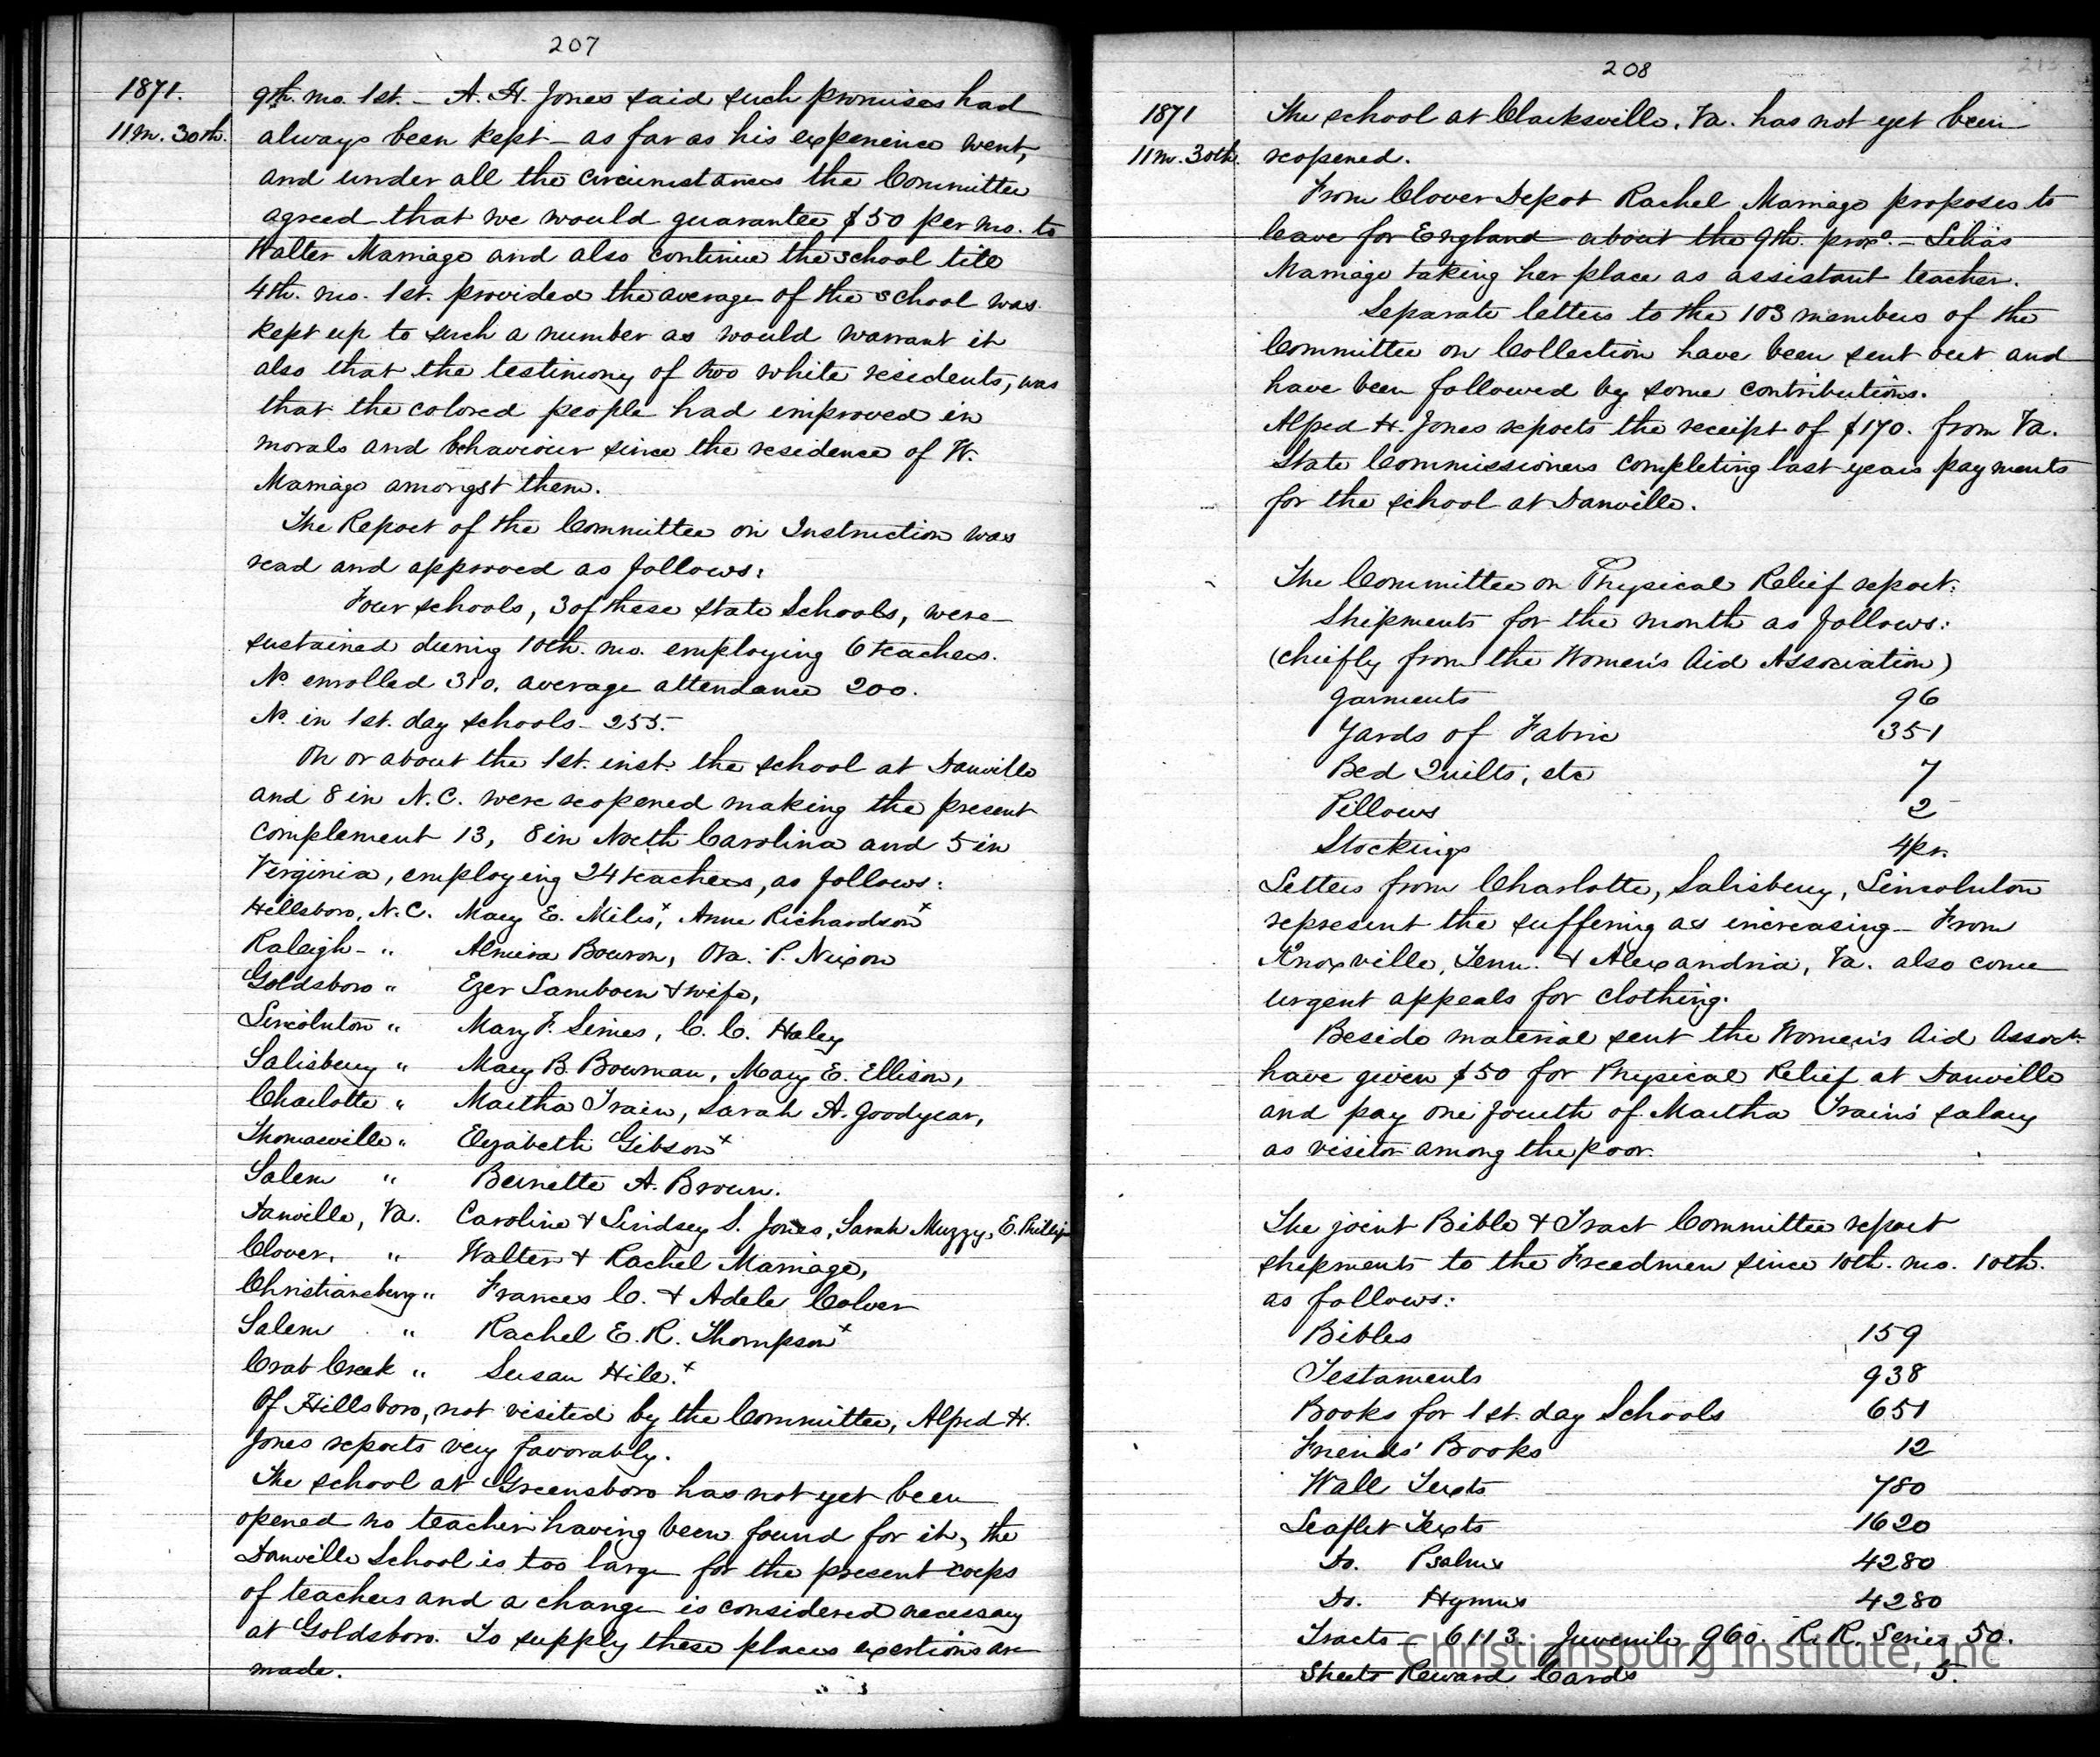 207
1871.
11 m. 30th.
9th. mo. 1st. – A. H. Jones said such promises had
always been kept – as far as his experience went,
and under all the circumstances the Committee
agreed that we would guarantee $50 per mo. to
Walter Marriage and also continue the school till
4th. mo. 1st. provided the average of the school was
kept up to such a number as would warrant it
also that the testimony of two white residents, was
that the colored people had improved in
morals and behaviour since the residence of W.
Marriage amongst them.
The Report of the Committee on Instruction was
read and approved as follows:
Four schools, 3 of these State Schools, were
sustained during 10th. mo. employing 6 teachers.
No. enrolled 310. average attendance 200.
No. in 1st. day schools – 255.
On or about the 1st. inst. the school at Danville
and 8 in N.C. were reopened making the present
complement 13, 8 in North Carolina and 5 in
Virginia, employing 24 teachers, as follows:
Hillsboro, N.C. Mary E. Miles,x Anne Richardsonx
Raleigh – " Almira Bowron, P. Nixon
Goldsboro " Ezer Lamborn & wife,
Lincolnton " Mary F. Simes, C. C. Haley
Salisbury " Mary B. Bowman, Mary E. Ellison,
Charlotte " Martha Train, Sarah A. Goodyear,
Thomasville " Elizabeth Gibsonx
Salem " Bernette A. Brown.
Danville, Va. Caroline & Lindsey S. Jones, Sarah Muzzy, E. Phillips
Clover, " Walter & Rachel Marriage,
Christiansburg " Frances C. & Adele Colver
Salem " Rachel E. R. Thompsonx
Crab Creek " Susan Hile.x
Of Hillsboro, not visited by the Committee, Alfred H.
Jones reports very favorably.
The school at Greensboro has not yet been
opened no teacher having been found for it, the
Danville School is too large for the present corps
of teachers and a change is considered necessary
at Goldsboro. To supply these places exertions are
made.
208
1871
11 m. 30th.
The school at Clarksville, Va. has not yet been
reopened.
From Clover Depot Rachel Marriage proposes to
leave for England about the 9th. proxo. – Lilias
Marriage taking her place as assistant teacher.
Separate letters to the 103 members of the
Committee on Collection have been sent out and
have been followed by some contributions.
Alfred H. Jones reports the receipt of $170. from Va.
State Commissioners completing last years payments
for the school at Danville.
The Committee on Physical Relief report:
Shipments for the month as follows:
(chiefly from the Women's Aid Association)
Garments 96
Yards of Fabric 351
Bed Quilts, etc 7
Pillows 2
Stockings 4 pr.
Letters from Charlotte, Salisbury, Lincolnton
represent the suffering as increasing – From
Knoxville, Tenn. & Alexandria, Va. also come
urgent appeals for clothing.
Beside material sent the Women's Aid Assoct.
have given $50 for Physical Relief at Danville
and pay one fourth of Martha Train's salary
as visitor among the poor.
The joint Bible & Tract Committee report
shipments to the Freedmen since 10th. mo. 10th.
as follows:
Bibles 159
Testaments 938
Books for 1st. day Schools 651
Friends' Books 12
Wall Texts 780
Leaflet Texts 1620
Do. Psalms 4280
Do. Hymns 4280
Tracts – 6113. Juvenile 960. R. R. Series 50.
Sheets Reward Cards 5.
Christiansburg Institute, Inc